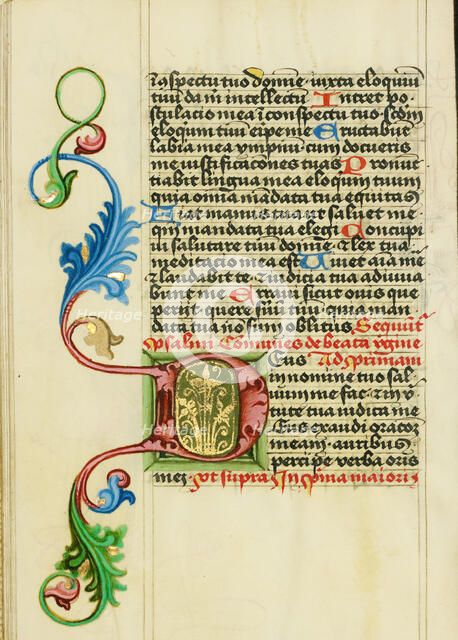 i aspectu tuo domie · iuxta eloquiu
tuu da m̃ intellectu Intret po
stulacio mea i conspectu tuo · scdm
eloquiu tuu eripe me Eructabut
labia mea ympnu cum docueris
me iustificacones tuas Pronu
tiabit lingua mea eloquium tuum
quia omia mandata tua equitas
Fiat manus tua ut saluet me
qm mandata tua elegi Concupi
ui salutare tuu domie · et lex tua
meditacio mea est Uiuet aia mea
et laudabit te · et iudicia tua adiuua
bunt me Erraui sicut ouis que
periit · quere seruu tuu · quia man
data tua no sum oblitus Sequut
psalmi Comunes de beata vgine
Deus Ad Primam
in nomine tuo sal
uum me fac · et in v
tute tua iudica me
Deus exaudi oracoz
meam · auribus
percipe verba oris
mei · vt supra In pima maioris
Heritage
Heritage
Heritage
Heritage